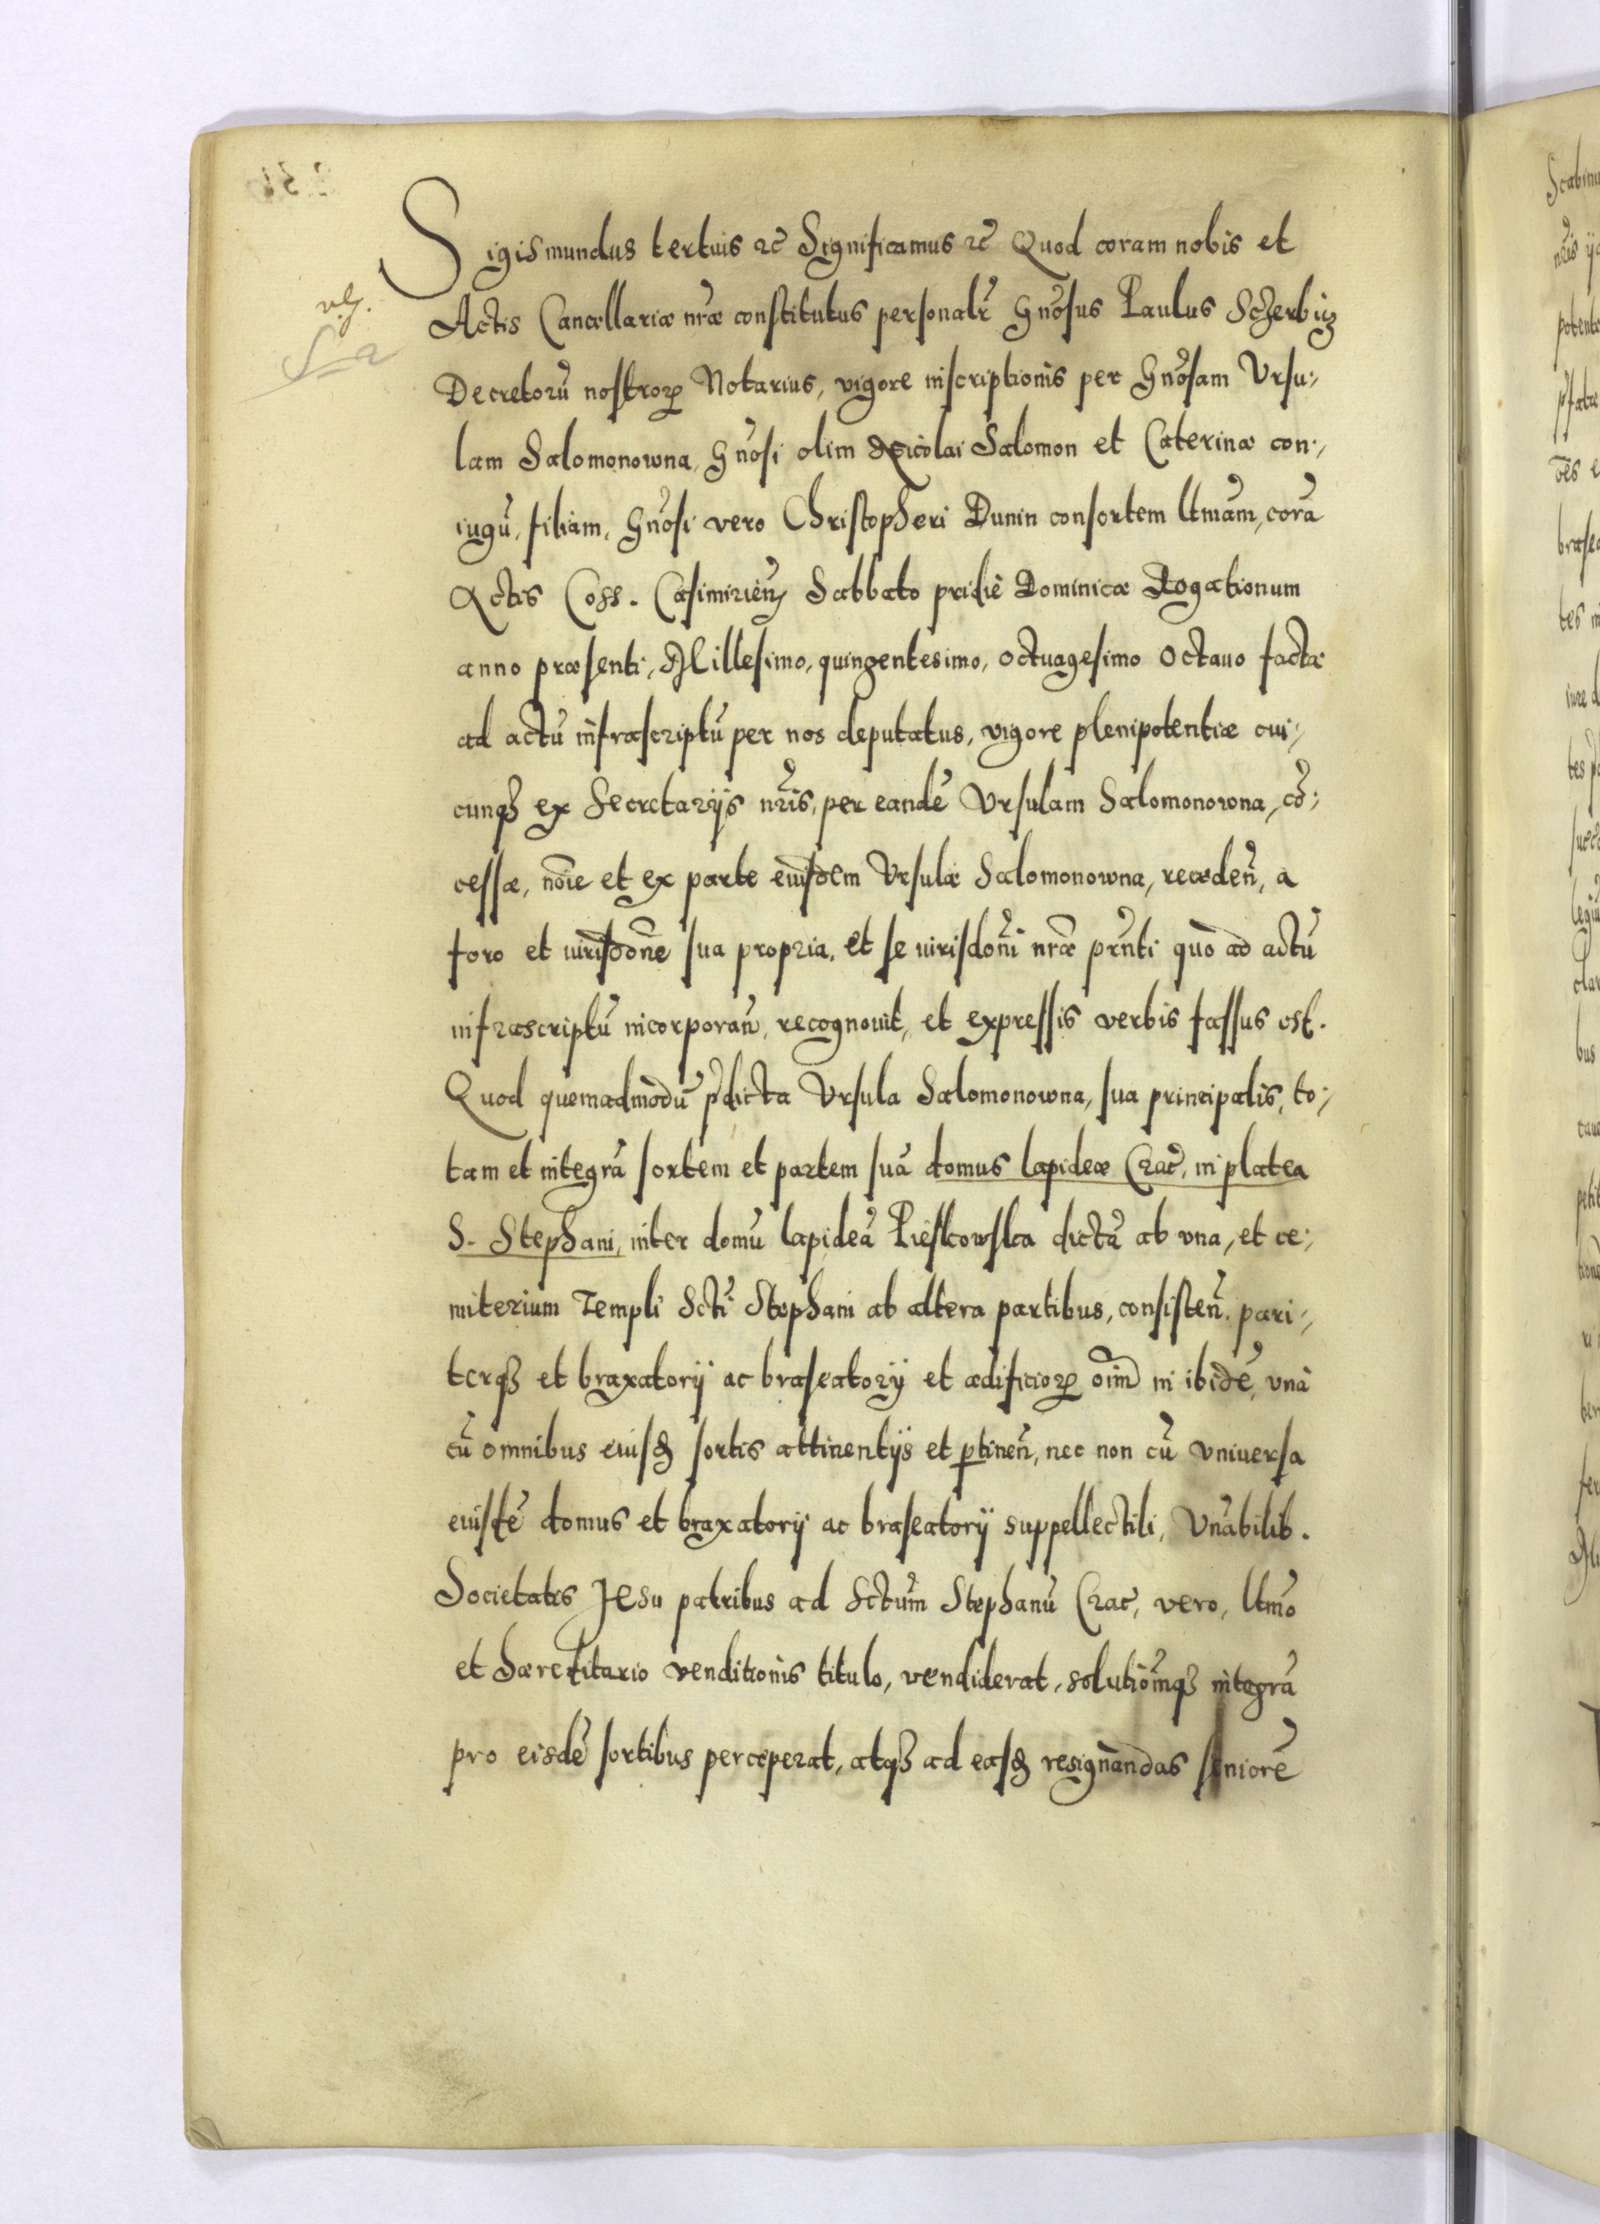 Sigismundus tertius ꝛc̄ Significamus ꝛc̄ Quod coram nobis et
Actis Cancellariæ nr̄æ constitutus personalr̄ Gn̄osus Paulus Sczerbiz
Decretorū nostrorꝫ Notarius, vigore inscriptionis per Gn̄osam Vrsu⹀
lam Salomonowna, Gn̄osi olim Nicolai Salomon et Caterinæ con⹀
iugū, filiam, Gn̄osi vero Christopheri Dunin consortem ltm̄am, corā
Actis Coss. Casimirien̄ Sabbato pridie Dominicæ Rogationum
anno præsenti, Millesimo, quingentesimo, octuagesimo octauo factæ
ad actū infrascriptū per nos deputatus, vigore plenipotentiæ cui⹀
cunqꝫ ex Secretarijs nr̄is, per eandē Vrsulam Salomonowna, cō⹀
cessæ, noīe et ex parte eiusdem Vrsulæ Salomonowna, recæden̄, a
foro et iurisdōne sua propria, et se iurisdōni nr̄æ prn̄ti quo ad actū
infrascriptū incorporan̄, recognouit, et expressis verbis fassus est.
Quod quemadmodū p̄dicta Vrsula Salomonowna, sua principalis, to⹀
tam et integrā sortem et partem suā domus lapideæ Crac̄, in platea
S. Stephani, inter domū lapideā Pieskowska dictā ab vna, et ce⹀
miterium Templi Scti Stephani ab altera partibus, consisten̄. pari⹀
terqꝫ et braxatorij ac braseatorij et ædificiorꝫ oīm in ibidē, vnà
cū omnibus eiusd̄ sortis attinentijs et ꝑtinen̄, nec non cū vniuersa
eiusdē domus et braxatorij ac braseatorij suppellectili, Vn̄abilib.
Societatis Jesu patribus ad Sctūm Stephanū Crac̄, vero, ltm̄o
et hæreditario venditionis titulo, vendiderat, solutiōmqꝫ integrā
pro eisdē sortibus perceperat, atqꝫ ad easd̄ resignandas seniorē